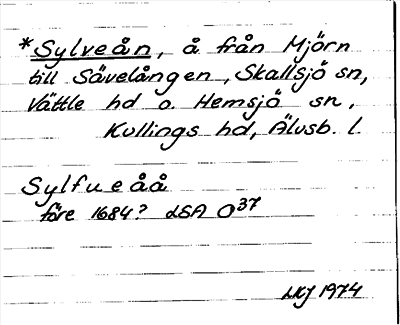 *Sylveån, å från Mjörn
till Sävelången, Skallsjö sn,
Vättle hd o. Hemsjö sn,
Kullings hd, Älvsb. l.
Sylfueåå
före 1684? LSA O37
LKJ 1974